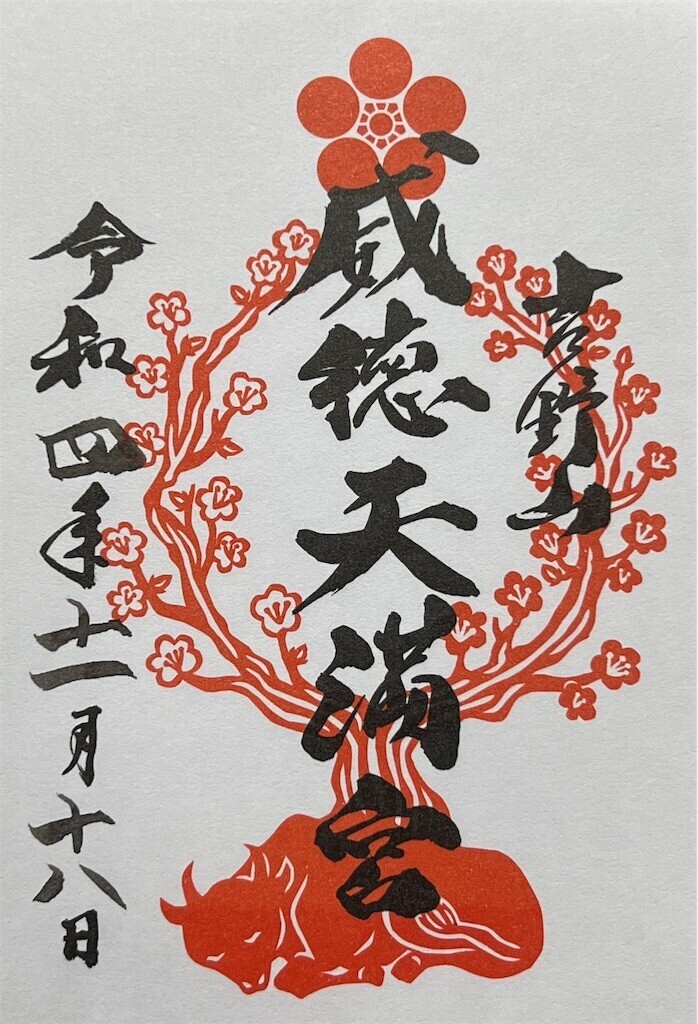 吉野山
威徳天満宮
令和四年十一月十八日